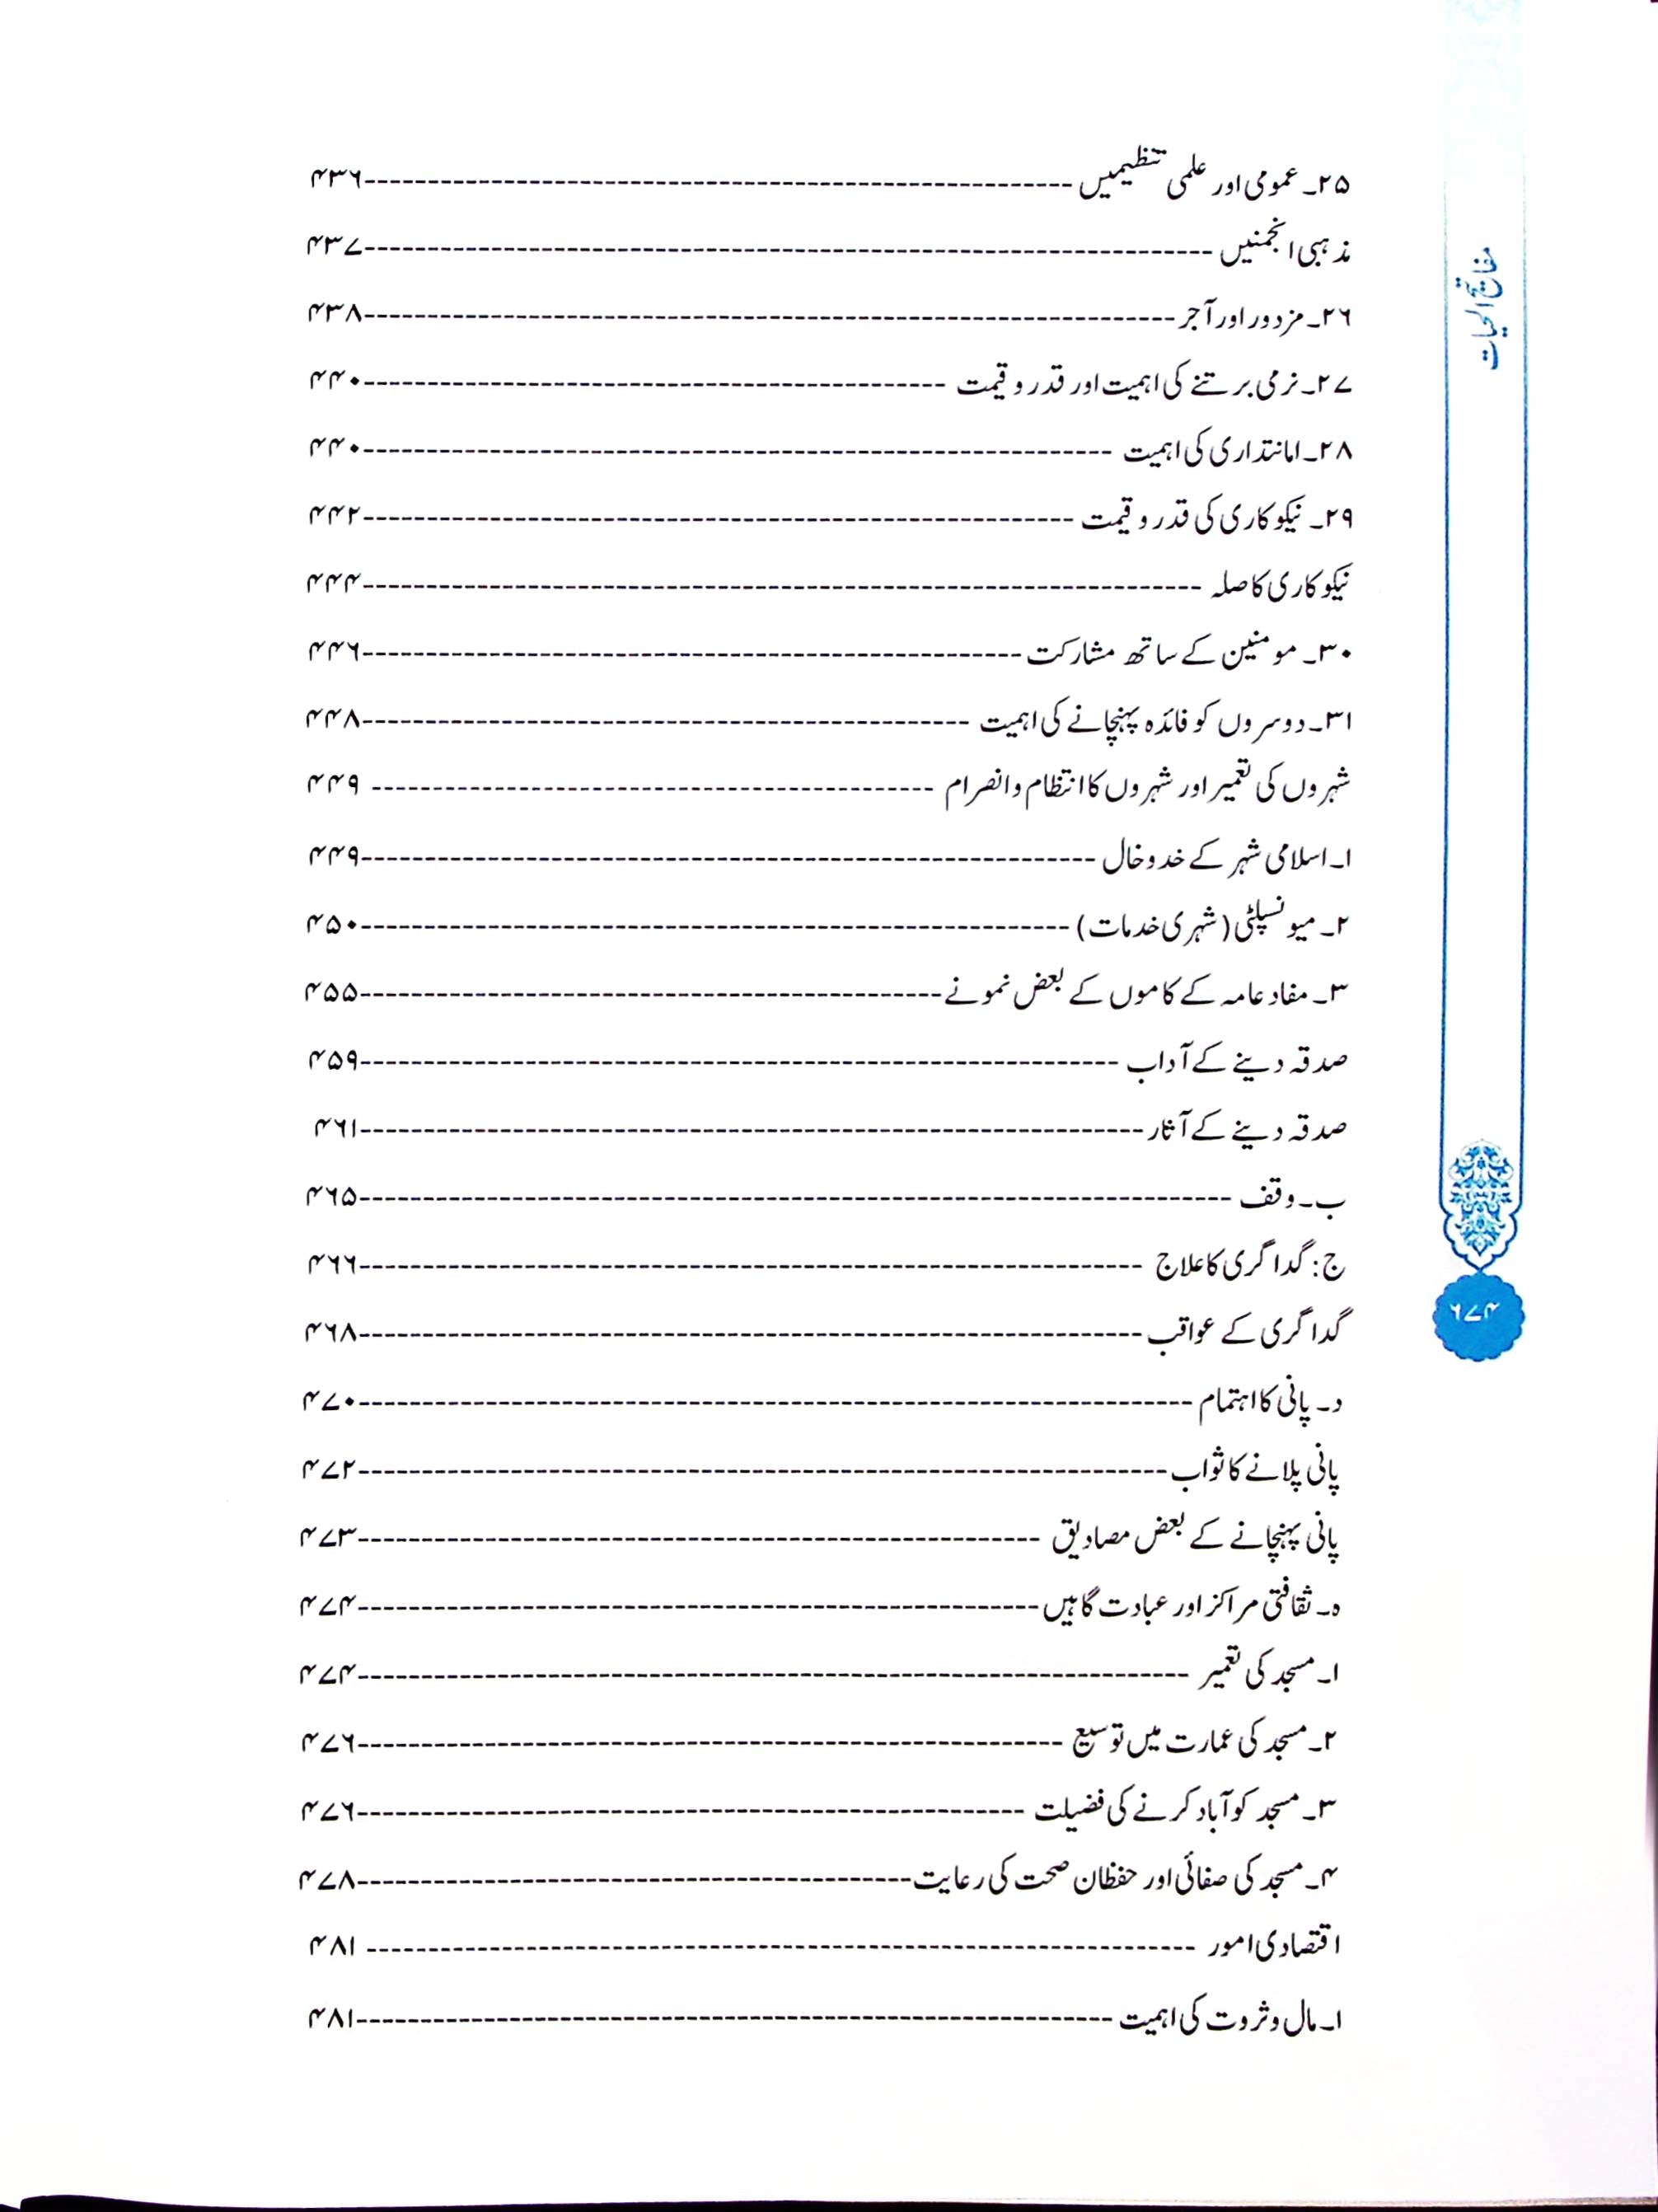 ۲۵۔ عمومی اور علمی تنظیمیں ---------- ۴۳۶
مذہبی انجمنیں ---------- ۴۳۷
۲۶۔ مزدور اور آجر ---------- ۴۳۸
۲۷۔ نرمی برتنے کی اہمیت اور قدر و قیمت ---------- ۴۴۰
۲۸۔ امانتداری کی اہمیت ---------- ۴۴۰
۲۹۔ نیکو کاری کی قدر و قیمت ---------- ۴۴۲
نیکو کاری کا صلہ ---------- ۴۴۴
۳۰۔ مومنین کے ساتھ مشارکت ---------- ۴۴۶
۳۱۔ دوسروں کو فائدہ پہنچانے کی اہمیت ---------- ۴۴۸
شہروں کی تعمیر اور شہروں کا انتظام و انصرام ---------- ۴۴۹
۱۔ اسلامی شہر کے خد و خال ---------- ۴۴۹
۲۔ میونسپلٹی (شہری خدمات) ---------- ۴۵۰
۳۔ مفاد عامہ کے کاموں کے بعض نمونے ---------- ۴۵۵
صدقہ دینے کے آداب ---------- ۴۵۹
صدقہ دینے کے آثار ---------- ۴۶۱
ب۔ وقف ---------- ۴۶۵
ج: گداگری کا علاج ---------- ۴۶۶
گداگری کے عواقب ---------- ۴۶۸
د۔ پانی کا اہتمام ---------- ۴۷۰
پانی پلانے کا ثواب ---------- ۴۷۲
پانی پہنچانے کے بعض مصادیق ---------- ۴۷۳
ہ۔ ثقافتی مراکز اور عبادت گاہیں ---------- ۴۷۴
۱۔ مسجد کی تعمیر ---------- ۴۷۴
۲۔ مسجد کی عمارت میں توسیع ---------- ۴۷۶
۳۔ مسجد کو آباد کرنے کی فضیلت ---------- ۴۷۶
۴۔ مسجد کی صفائی اور حفظان صحت کی رعایت ---------- ۴۷۸
اقتصادی امور ---------- ۴۸۱
۱۔ مال و ثروت کی اہمیت ---------- ۴۸۱
مفاتیح الحیات
۶۷۴